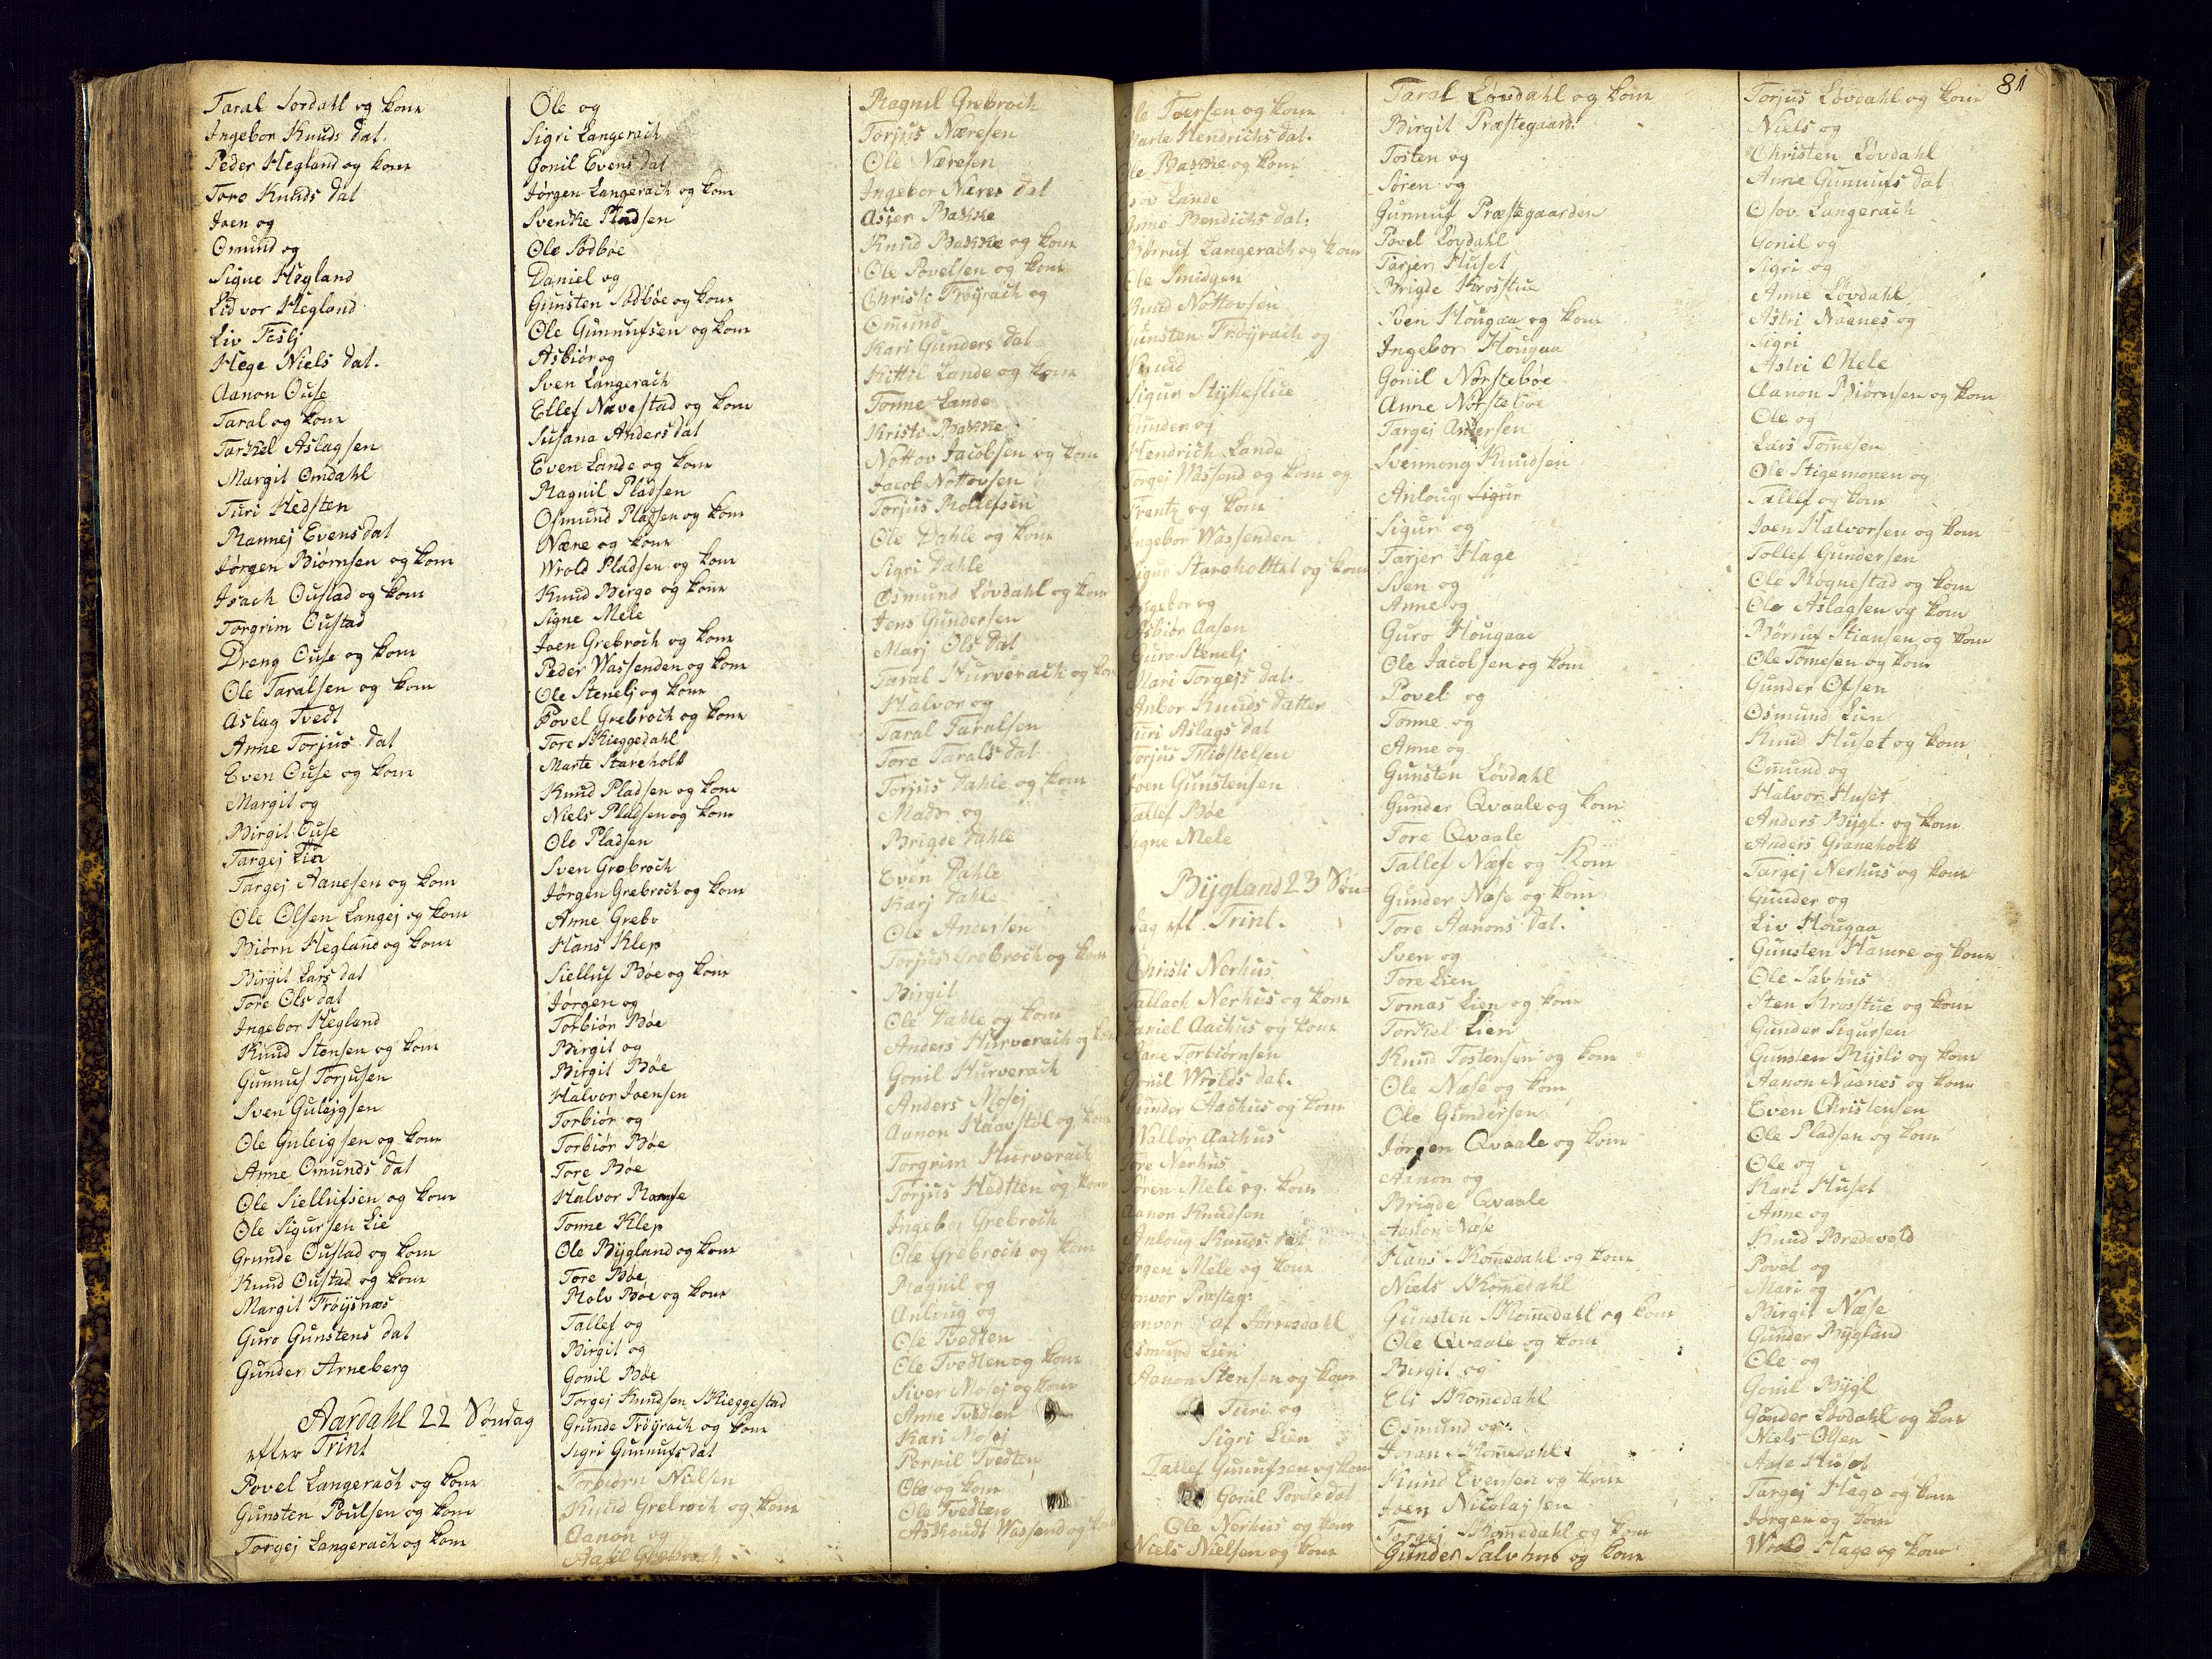 Taral Sordahl og kone
Ingebor Knuds dat.
Peder Hegland og kone
Tore Knuds dat
Joen og
Omund og
Signe Hegland
Lidvor Hegland
Liv
Hege Niels dat.
Aanon Ouse
Taral og kone
Tarkel Aslagsen
Margit Omdahl
Turi Hedsten
Evens dat
Jørgen Biørnsen og kone
Isach Oustad og kone
Torgrim Oustad
Dreng Ouse og kone
Ole Taralsen og kone
Aslag Tvedt
Anne Torjus dat
Even Ouse og kone
Margit og
Birgit Ouse
Targej Lien
Targej Aanesen og kone
Ole Olsen Langej og kone
Biørn Hegland og kone
Birgit Lars dat
Tore Ols dat
Ingebor Hegland
Knud Stensen og kone
Gunnuf Torjusen
Sven Gulejgsen
Ole Guleigsen og kone
Anne Omunds dat
Ole Siellufsen og kone
Ole Sigursen Lie
Grunde Oustad og kone
Knud Oustad og kone
Margit Frøysnæs
Guro Gunstens dat
Gunder Arneberg
Aardahl 22 Søndag
efter Trint
Povel Langerach og kone
Gunsten Poulsen og kone
Torgej Langerach og kone
Ole og
Sigri Langerach
Gonil Evens dat
Jørgen Langerach og kone
Svenke Pladsen
Ole Sodbøe
Daniel og
Gunsten Sodbøe og kone
Ole Gunnufsen og kone
Asbiør og
Sven Langerach
Ellef Navestad og kone
Susana Anders dat
Even Lande og kone
Ragnil Pladsen
Osmund Pladsen og kone
Nære og kone
Wrold Pladsen og kone
Knud Berge og kone
Signe Mele
Joen Grebroch og kone
Peder Wassenden og kone
Ole Stenelj og kone
Povel Grebroch og kone
Tore Skieggedahl
Marte Stareholt
Knud Pladsen og kone
Niels Pladsen og kone
Ole Pladsen
Sven Grebroch
Jørgen Grebroch og kone
Anne Grebr
Hans Klep
Sielluf Bøe og kone
Jørgen og
Torbiør Bøe
Birgit og
Birgit Bøe
Halvor Joensen
Torbiør og
Torbiør Bøe
Tore Bøe
Halvor
Tonne Klep
Ole Bygland og kone
Tore Bøe
Rolv Bøe og kone
Tallef og
Birgit og
Gonil Bøe
Torgej Knudsen Skieggestad
Grunde Frøyrach og kone
Sigri Gunnufs dat
Torbiørn Nielsen
Knud Grebroch og kone
Aanon og
Aasil Grebroch
Ragnil Grebroch
Torjus Næresen
Ole Næresen
Ingebor Næres dat
Asier Bakke
Knud Bakke og kone
Ole Povelsen og kone
Christi Frøyrach og
Omund
Kari Gunders dat
Kittil Lande og kone
Tonne Lande
Kristi Bakke
Nottov Jacobsen og kone
Jacob Nottovsen
Torjus Rollefsen
Ole Dahle og kone
Sigri Dahle
Osmund Løvdahl og kone
Jens Gundersen
Marj Ols dat
Taral Hurverach og kone
Halvor og
Taral Taralsen
Tore Tarals dat
Torjus Dahle og kone
Mads og
Brigde Dahle
Even Dahle
Karj Dahle
Ole Andersen
Torjus Grebroch og kone
Birgit
Ole Dahle og kone
Anders Hurverach og kone
Gonil Hurverach
Anders Mosej
Aanon Haavstøl og kone
Torgrim Hurverach
Torjus Hedtten og kone
Ingebor Grebroch
Ole Grebroch og kone
Ragnil og
Anloug og
Ole Tvedten
Ole Tvedten og kone
Siver Mosej og kone
Anne Tvedten
Kari Mosej
Pernil Tvedten
Ole og kone
Ole Tvedten
Wassend og kone
81
Ole Toersen og kone
Marte Hendrichs dat.
Ole Bakke og kone
Lande
Anne Bendichs dat.
Børruf Langerach og kone
Ole Smidgen
Knud Nottovsen
Gunsten Frøyrach og
Knud
Sigur Stykestue
Gunder og
Hendrich Lande
Torgej Wassend og kone og
Frantz og kone
Ingebor Wassenden
Sigur Stareholttel og kone
Ingebor og
Asbiør Aasen
Guro Stenelj
Mari Torgejs dat.
Anbor Knuds datter
Turi Aslags dat
Torjus Thiøstelsen
Joen Gunstensen
Tallef Bøe
Signe Mele
Bygland 23 Søn-
dag eft. Trint.
Christi Nerhus
Tallach Nerhus og kone
Daniel Aachus og kone
Aane Torbiørnsen
Gonil Wrolds dat.
Gunder Aachus og kone
Walbor Aachus
Tore Nerhus
Søren Mele og kone
Aanon Knudsen
Anloug Knuds dat
Jørgen Mele og kone
Gonvor Præsteg:
Gonvor af
Osmund Lien
Aanon Stensen og kone
Turi og
Sigri Lien
Tallef Gunnufsen og kone
Gonil Povels dat
Ole Nerhus og kone
Niels Nielsen og kone
Taral Løvdahl og kone
Birgit Præstegaard.
Tosten og
Søren og
Gunnuf Præstegaarden
Povel Løvdahl
Tarjer Huset
Brigde Krostue
Sven Hougaa og kone
Ingebor Hougaa
Gonil Nørstebøe
Anne Nørstebøe
Targej Andersen
Svennong Knudsen
Anloug Sigur
Sigur og
Tarjer Hage
Sven og
Anne og
Guro Hougaa
Ole Jacobsen og kone
Povel og
Tonne og
Anne og
Gunsten Løvdahl
Gunder Qvaale og kone
Tore Qvaale
Tallef Næse og kone
Gunder Næse og kone
Tore Aanons dat.
Sven og
Tore Lien
Tomas Lien og kone
Torkel Lien
Knud Tostensen og kone
Ole Næse og kone
Ole Gundersen
Jørgen Qvaale og kone
Aanon og
Brigde Qvaale
Næse
Hans Skomedahl og kone
Niels Skomedahl
Gunsten Skomedahl og kone
Ole Qvaale og kone
Birgit og
Eli Skomedahl
Osmund og
Joran Skomedahl
Knud Evensen og kone
Joen Nicolajsen
Torgej Skomedahl og kone
Gunder Salvhus og kone
Torjus Løvdahl og kone
Niels og
Christen Løvdahl
Anne Gunnufs dat
Osov. Langerach
Gonil og
Sigri og
Anne Løvdahl
Astri Naanes og
Sigri
Astri Mele
Aanon Biørnsen og kone
Ole og
Lars Tomesen
Ole Stigemonen og
Tallef og kone
Joen Halvorsen og kone
Tollef Gundersen
Ole Røgnestad og kone
Ole Aslagsen og kone
Børruf Stiansen og kone
Ole Tomesen og kone
Gunder Olsen
Osmund Lien
Knud Huset og kone
Omund og
Halvor Huset
Anders Bygl. og kone
Anders Graneholt
Targej Nerhus og kone
Gunder og
Liv Hougaa
Gunsten Hamre og kone
Ole Salvhus
Sten Krostue og kone
Gunder Sigursen
Gunsten Rysli og kone
Aanon Naanes og kone
Even Christensen
Ole Pladsen og kone
Ole og
Kari Huset
Anne og
Knud Bredevold
Povel og
Mari og
Birgit Næse
Gunder Bygland
Ole og
Gonil Bygl
Gunder Løvdahl og kone
Niels Olsen
Aase Huset
Targej Hege og kone
Jørgen og kone
Wrold Hage og kone